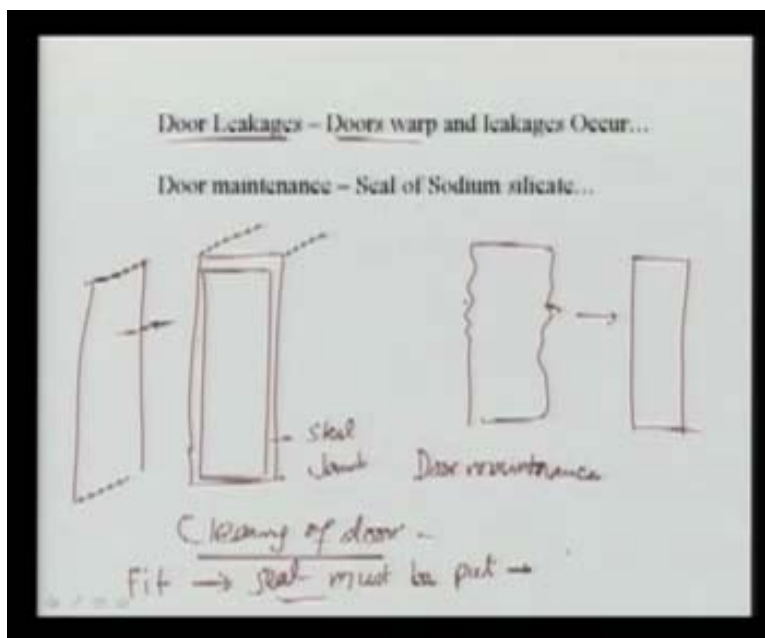 Door Leakages – Doors warp and leakages Occur...
Door maintenance – Seal of Sodium silicate...
Door maintenance
Cleaning of door -
Fit → seal must be put →